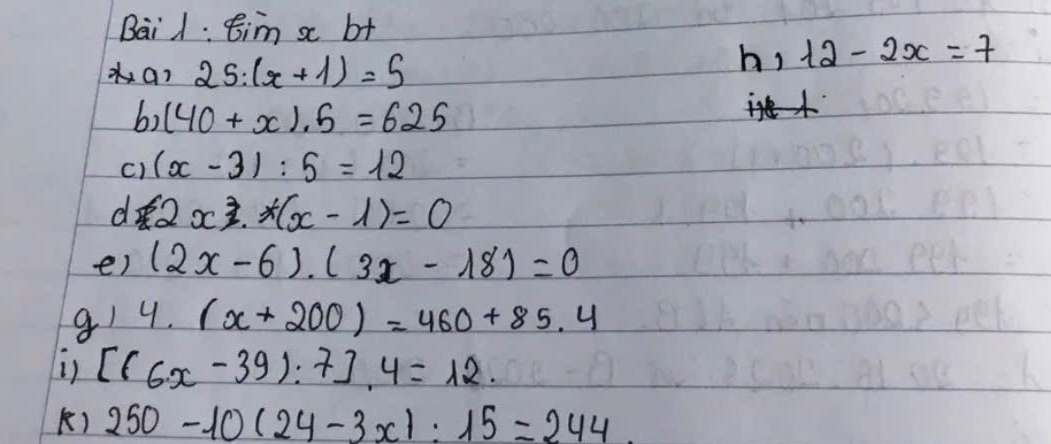 Bài 1: Tìm x bt
a, 25:(x + 1) = 5
b,(40 + x).5 = 625
c,(x - 3) : 5 = 12
d 2x.(x - 1) = 0
e, (2x - 6).(3x - 18) = 0
g, 4. (x + 200) = 460 + 85.4
h, 12 - 2x = 7
i, [(6x - 39):7].4 = 12.
k, 250 - 10(24 - 3x) : 15 = 244.